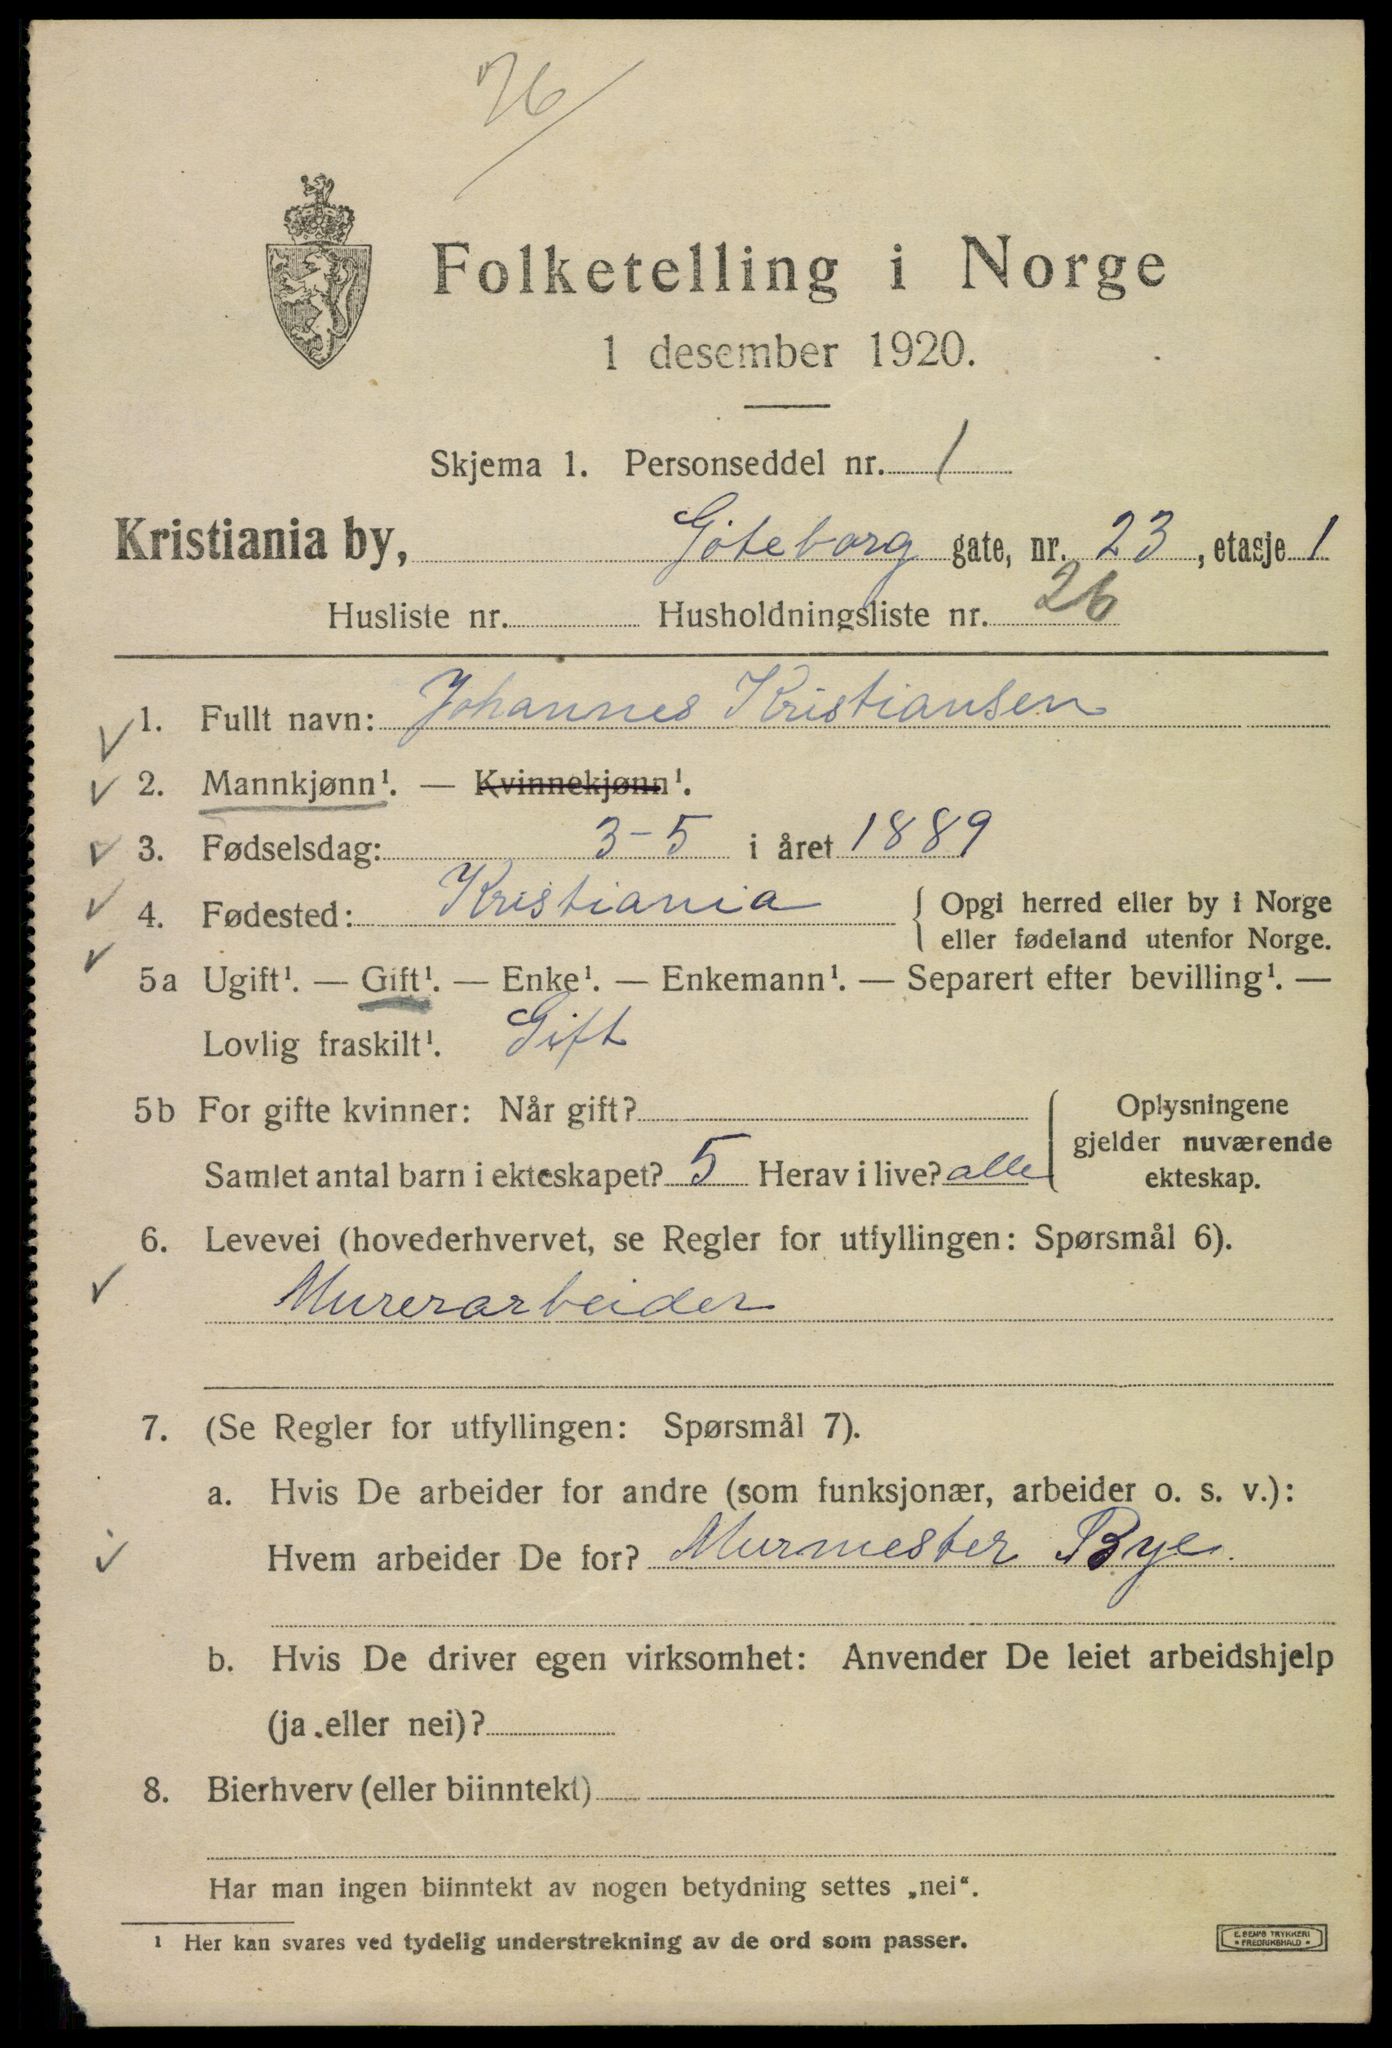 76
Folketelling i Norge
1 desember 1920.
Skjema 1. Personseddel nr. 1
Kristiania by, Göteborg gate, nr. 23, etasje 1
Husliste nr. Husholdningsliste nr. 26
1. Fullt navn: Johannes Kristiansen
2. Mannkjønn¹. — Kvinnekjønn¹.
3. Fødselsdag: 3-5 i året 1889
4. Fødested: Kristiania { Opgi herred eller by i Norge
eller fødeland utenfor Norge.
5a Ugift¹. — Gift¹. — Enke¹. — Enkemann¹. — Separert efter bevilling¹. —
Lovlig fraskilt¹. Gift
5b For gifte kvinner: Når gift?
Samlet antal barn i ekteskapet? 5 Herav i live? alle
Oplysningene
gjelder nuværende
ekteskap.
6. Levevei (hovederhvervet, se Regler for utfyllingen: Spørsmål 6).
Murerarbeider
7. (Se Regler for utfyllingen: Spørsmål 7).
a. Hvis De arbeider for andre (som funksjonær, arbeider o. s. v.):
Hvem arbeider De for? Murmester Bye.
b. Hvis De driver egen virksomhet: Anvender De leiet arbeidshjelp
(ja eller nei)?
8. Bierhverv (eller biinntekt)
Har man ingen biinntekt av nogen betydning settes „nei“.
¹ Her kan svares ved tydelig understrekning av de ord som passer.
E. SEM'S TRYKKERI
* FREDRIKSHALD *